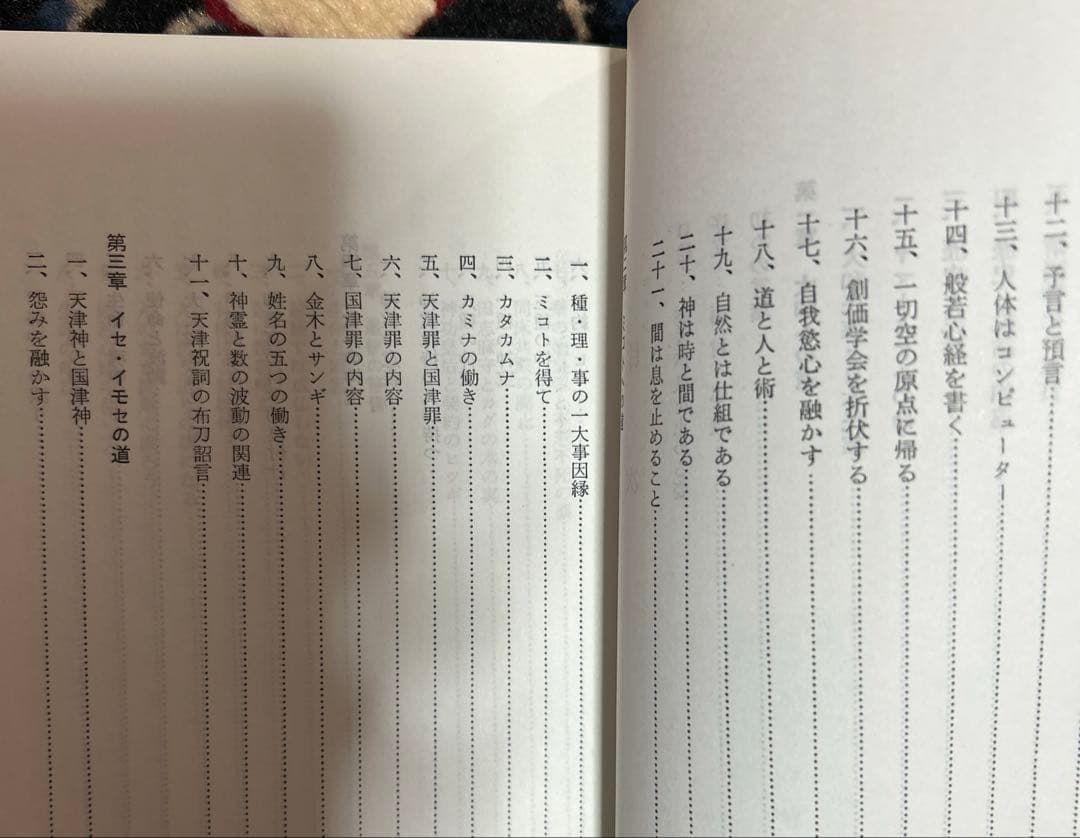 十二、予言と預言
十三、人体はコンピューター
十四、般若心経を書く
十五、一切空の原点に帰る
十六、創価学会を折伏する
十七、自我慾心を融かす
十八、道と人と術
十九、自然とは仕組である
二十、神は時と間である
二十一、間は息を止めること
一、種・理・事の一大事因縁
二、ミコトを得て
三、カタカムナ
四、カミナの働き
五、天津罪と国津罪
六、天津罪の内容
七、国津罪の内容
八、金木とサンギ
九、姓名の五つの働き
十、神霊と数の波動の関連
十一、天津祝詞の布刀詔言
第三章 イセ・イモセの道
一、天津神と国津神
二、怨みを融かす